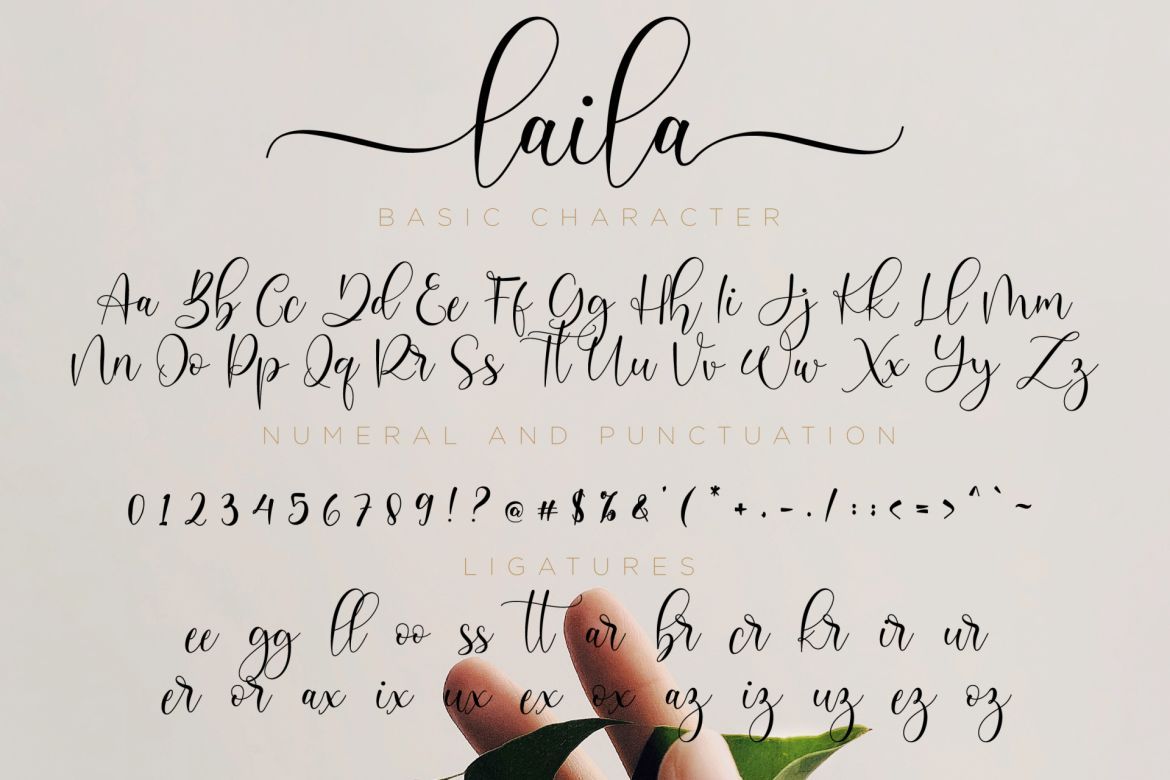 laila
BASIC CHARACTER
Aa Bb Cc Dd Ee Ff Gg Hh Ii Jj Kk Ll Mm
Nn Oo Pp Qq Rr Ss Tt Uu Vv Ww Xx Yy Zz
NUMERAL AND PUNCTUATION
0 1 2 3 4 5 6 7 8 9 ! ? @ # $ % & ' ( * + , - . / : ; < = > ^ ` ~
LIGATURES
ee gg ll oo ss tt ar br cr kr ir ur
er or ax ix ux ex ox az iz uz ez oz